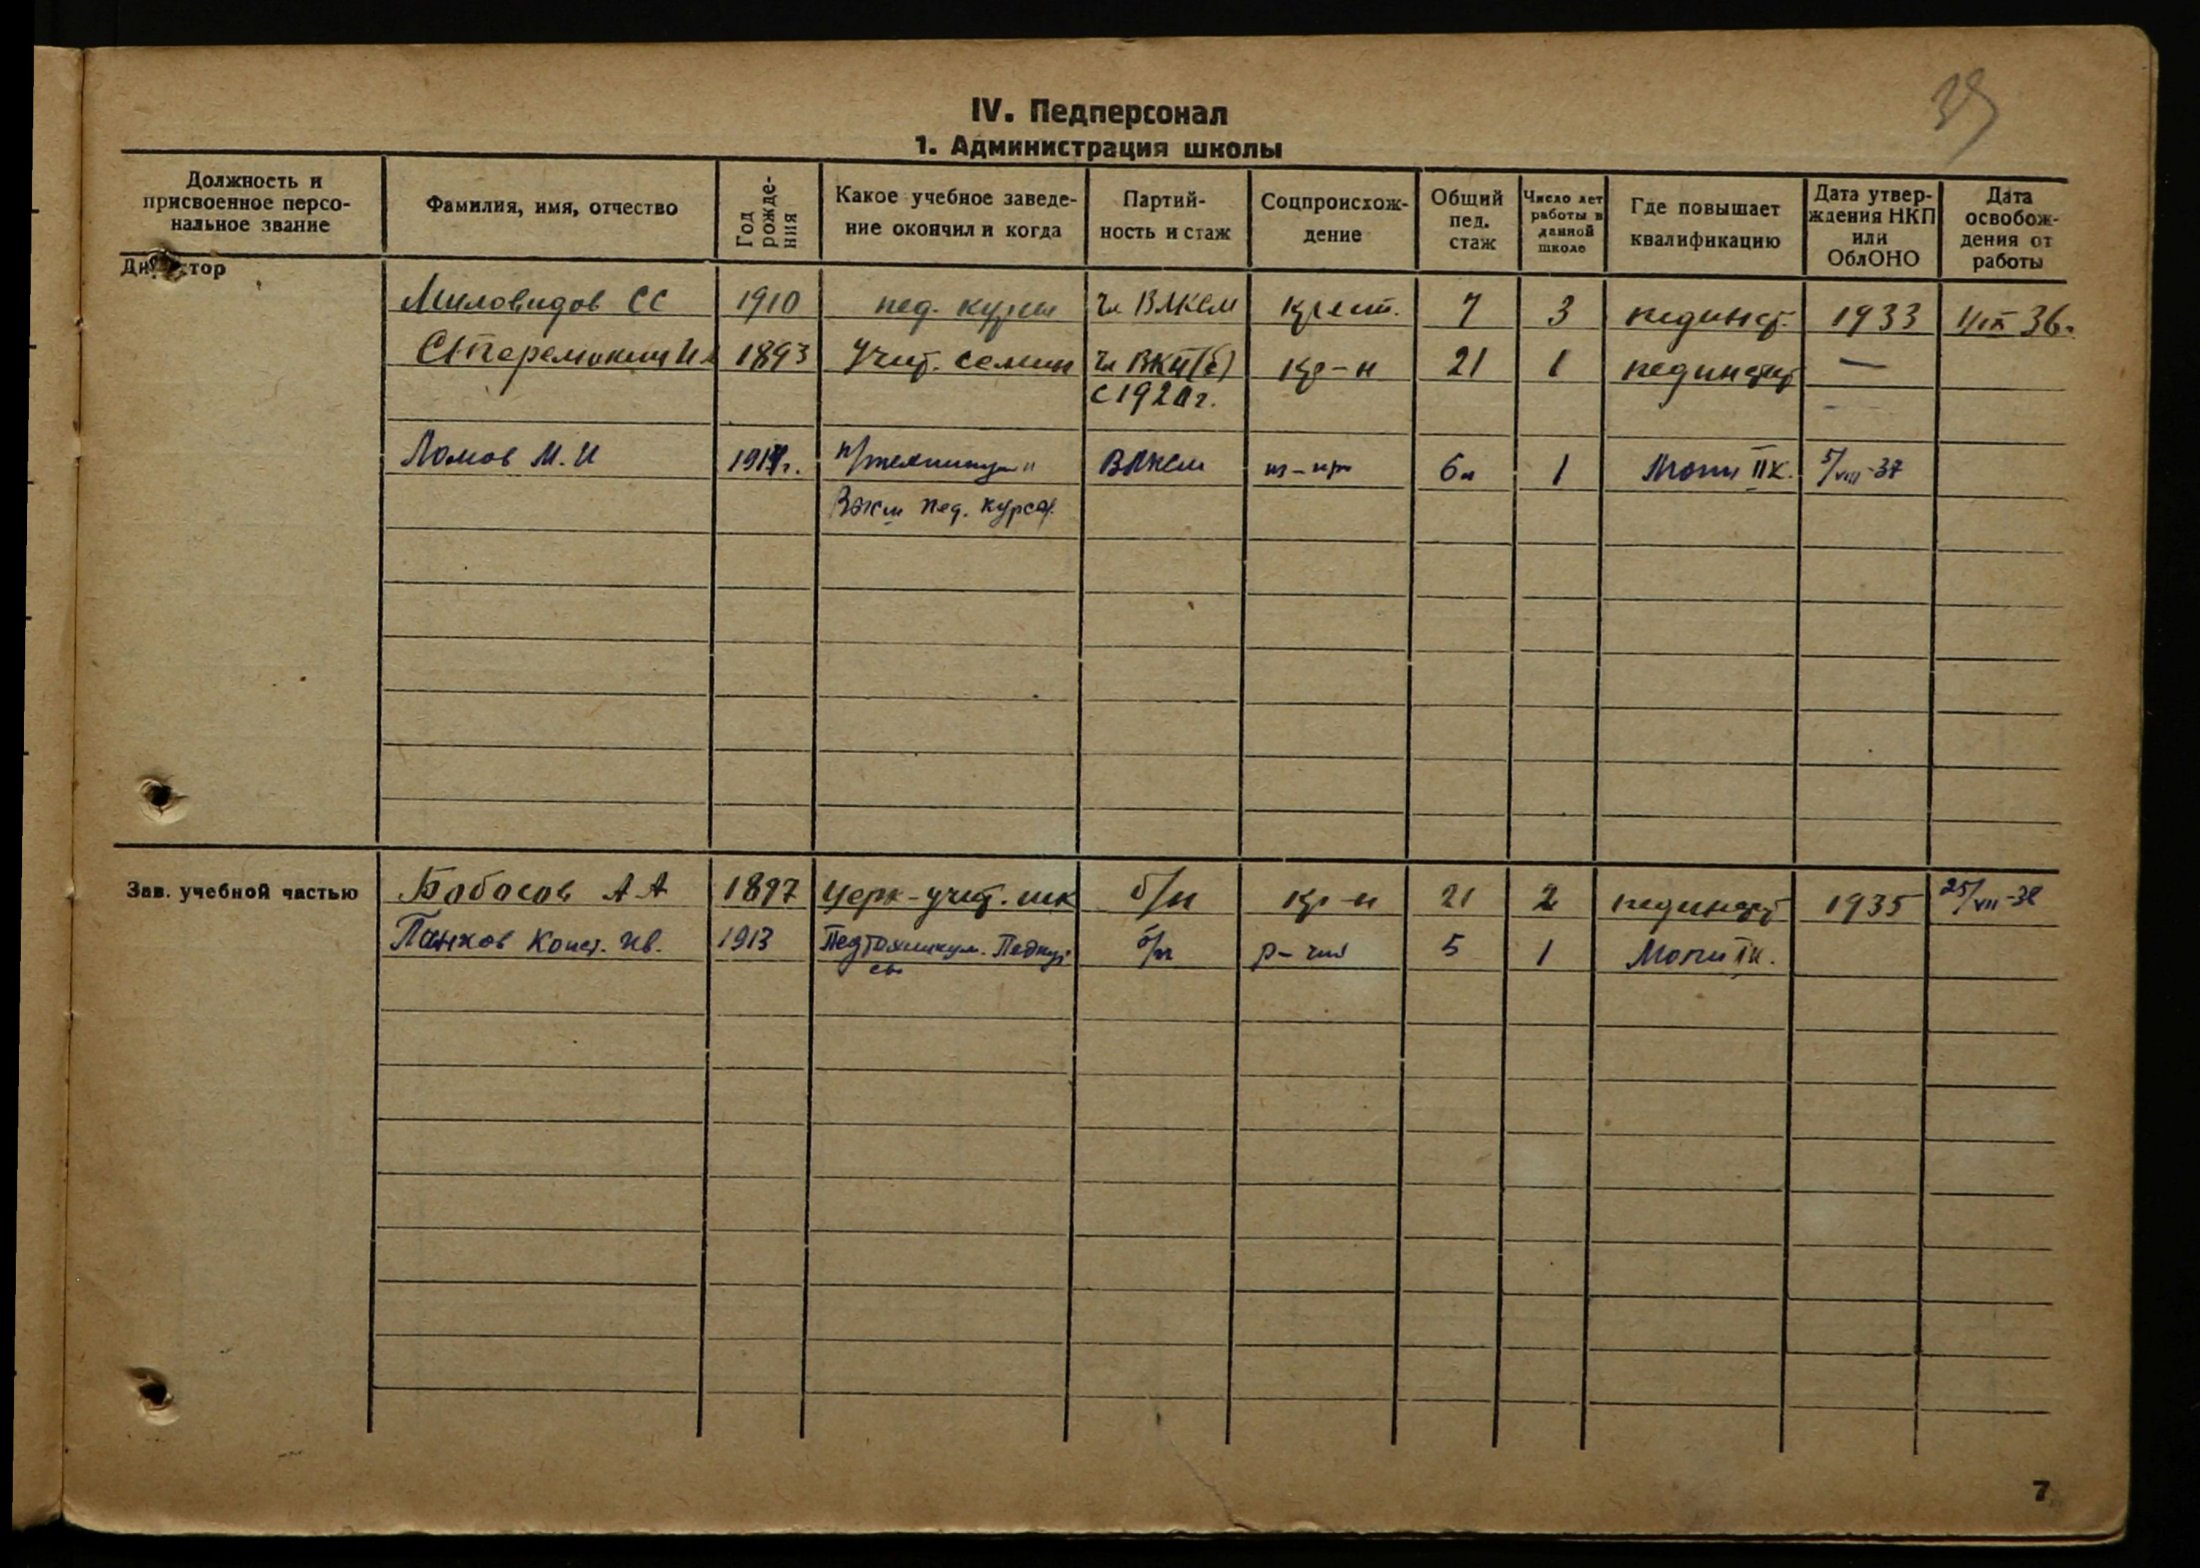 39
IV. Педперсонал
1. Администрация школы
Должность и присвоенное персо- нальное звание
Фамилия, имя, отчество
Год рожде- ния
Какое учебное заведе- ние окончил и когда
Партий- ность и стаж
Соцпроисхож- дение
Общий пед. стаж
Число лет работы в данной школе
Где повышает квалификацию
Дата утвер- ждения НКП или ОблОНО
Дата освобож- дения от работы
Директор
Миловидов СС 1910 пед. курсы чл ВЛКСМ крест. 7 3 пединст. 1933 1/IX 36г
1893 Учит. семин чл ВКП(б) кр-н 21 1 пединстит —
с 1920г.
Ломов М. И г. п/техникум ВЛКСМ 6л 1 Мопи II К. 5/VIII-37
пед. курсы
Зав. учебной частью Бабасов А А 1897 Церк-учит. шк б/п кр-н 21 2 пединстит 1935 25/VII-38
Панков Конст. Ив. 1913 Педтехникум. Педкур б/п р-чий 5 1 Мопи II к.
сы
7